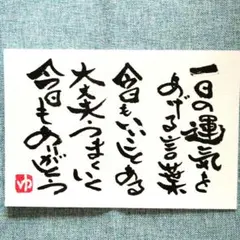 一日の運気を
あげる言葉
今日もいいことある
大丈夫うまくいく
今日もありがとう
ゆ